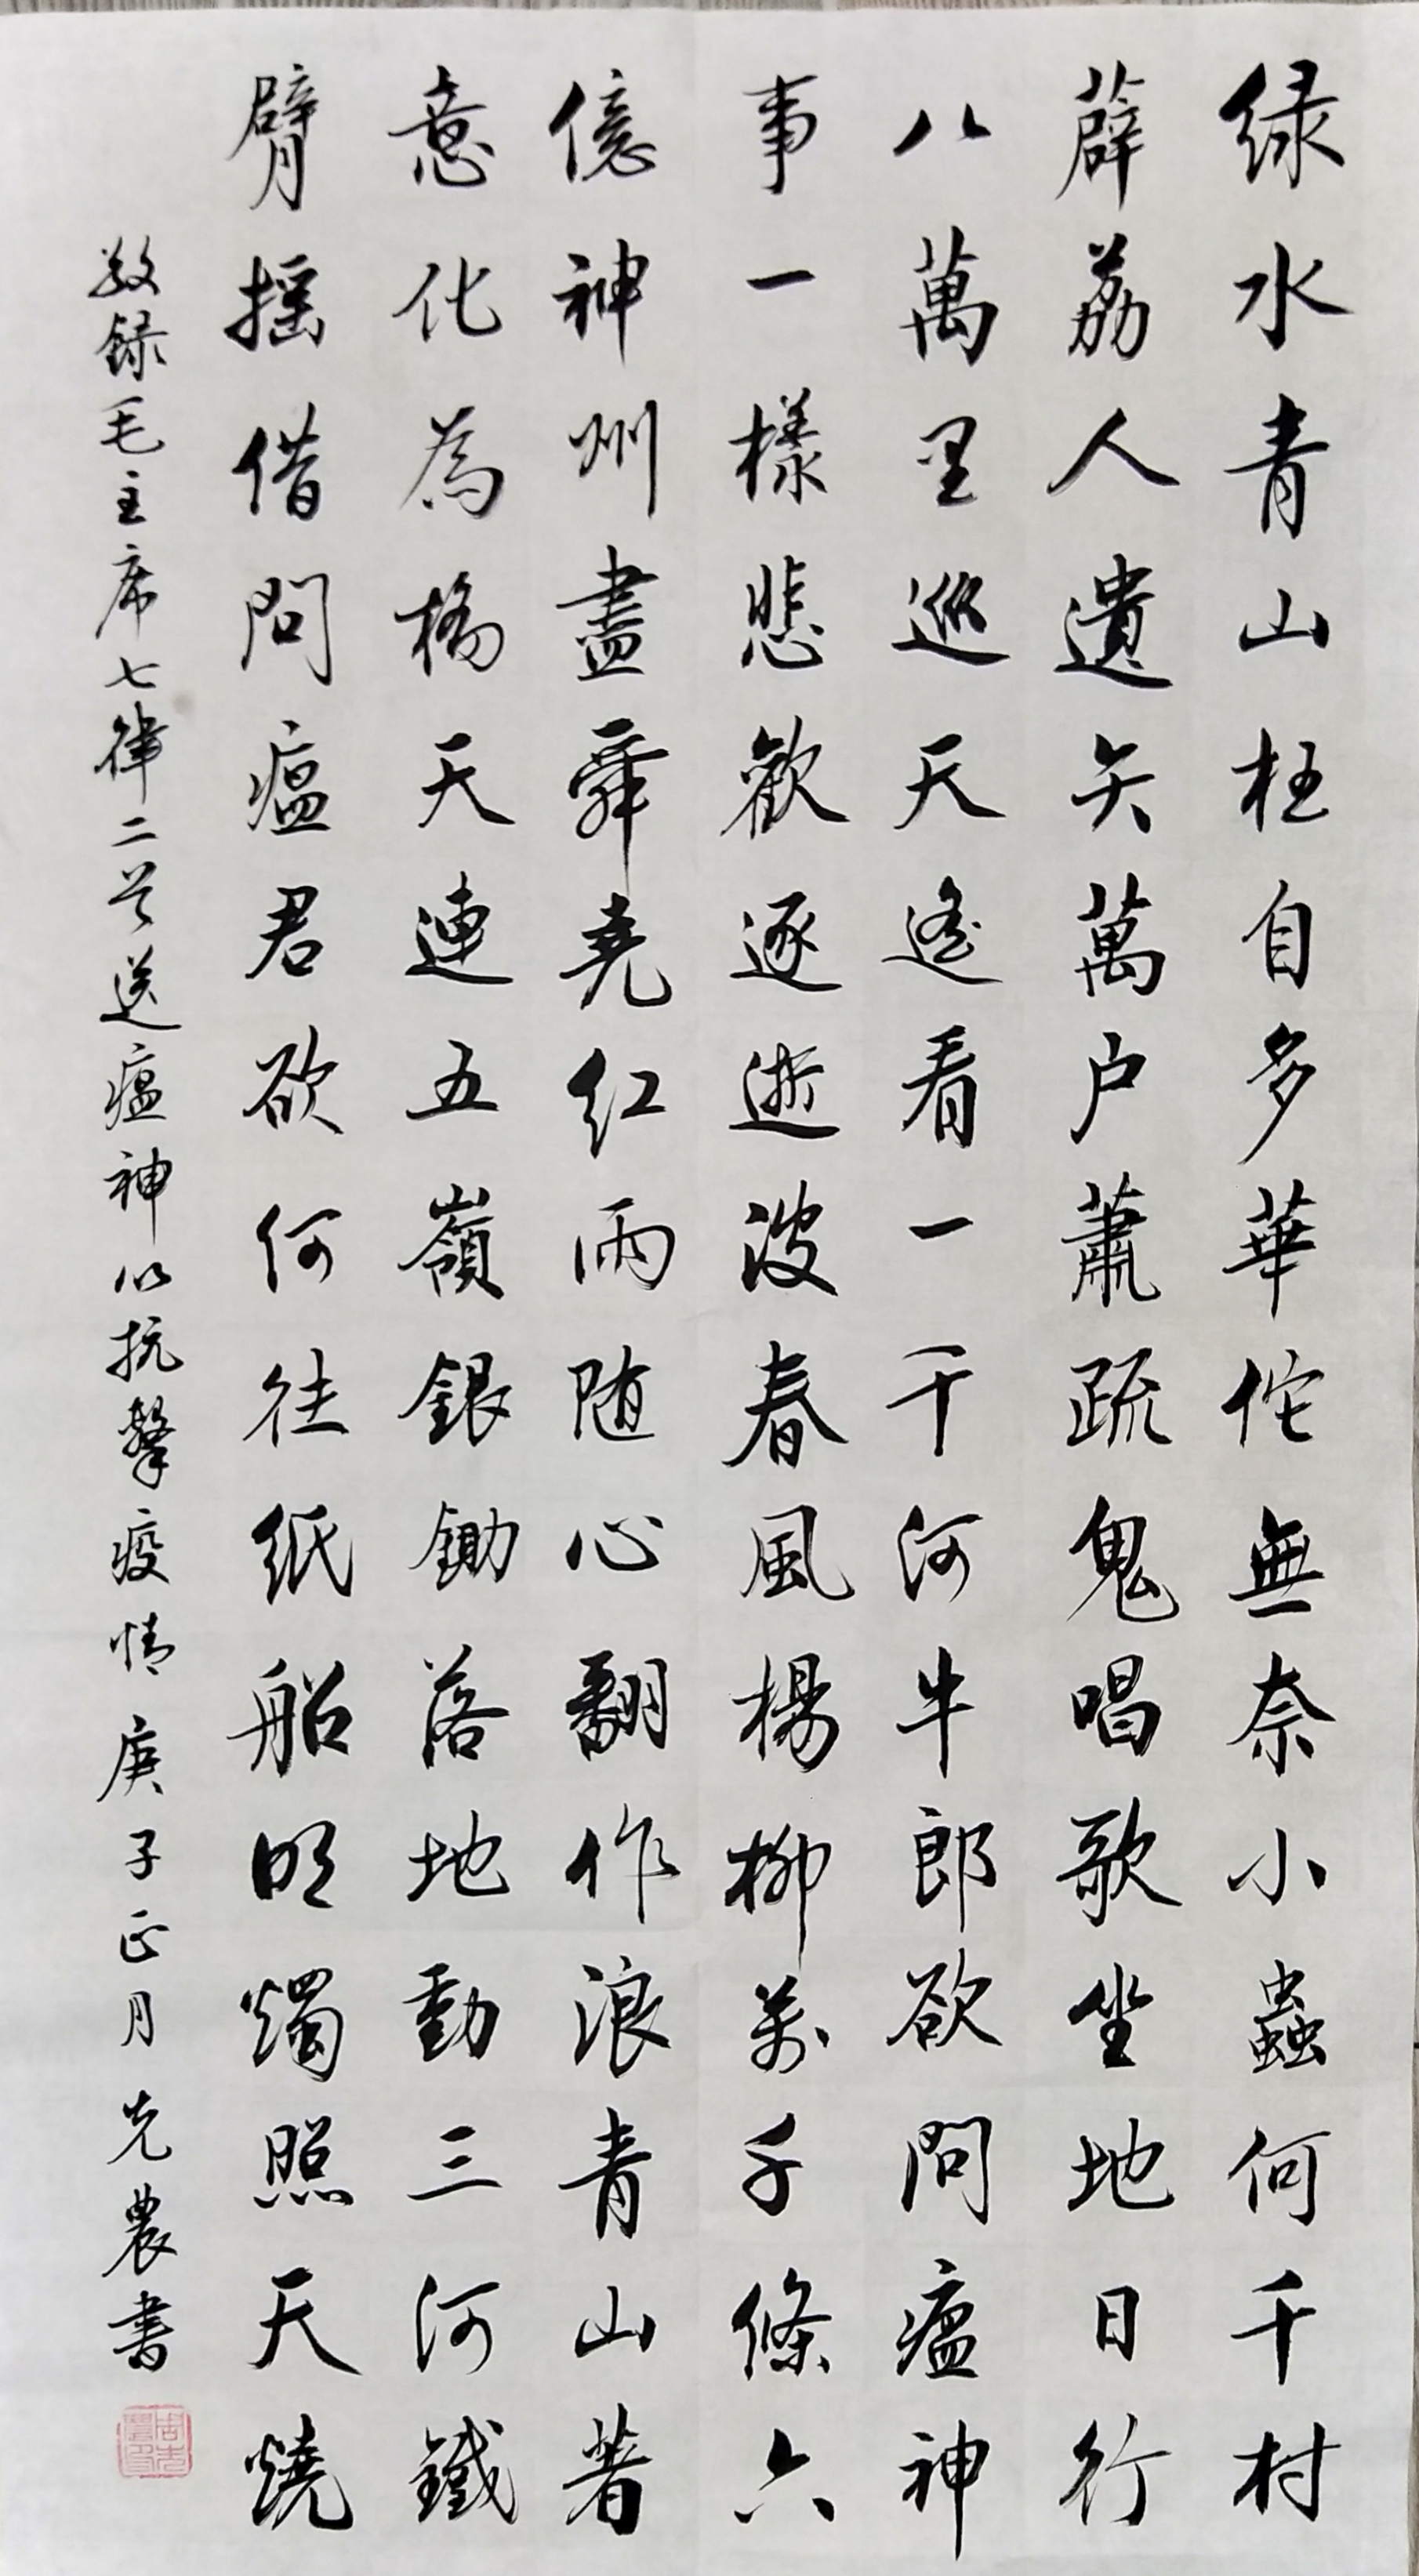 绿水青山枉自多華佗無奈小蟲何千村
薜荔人遺矢萬户蕭疏鬼唱歌坐地日行
八萬里巡天遙看一千河牛郎欲問瘟神
事一樣悲歡逐逝波春風楊柳萬千條六
億神州盡舜堯红雨随心翻作浪青山著
意化為橋天連五嶺銀鋤落地動三河鐵
臂摇借問瘟君欲何往纸船明燭照天燒
敬録毛主席七律二首送瘟神以抗擊疫情庚子正月先農書